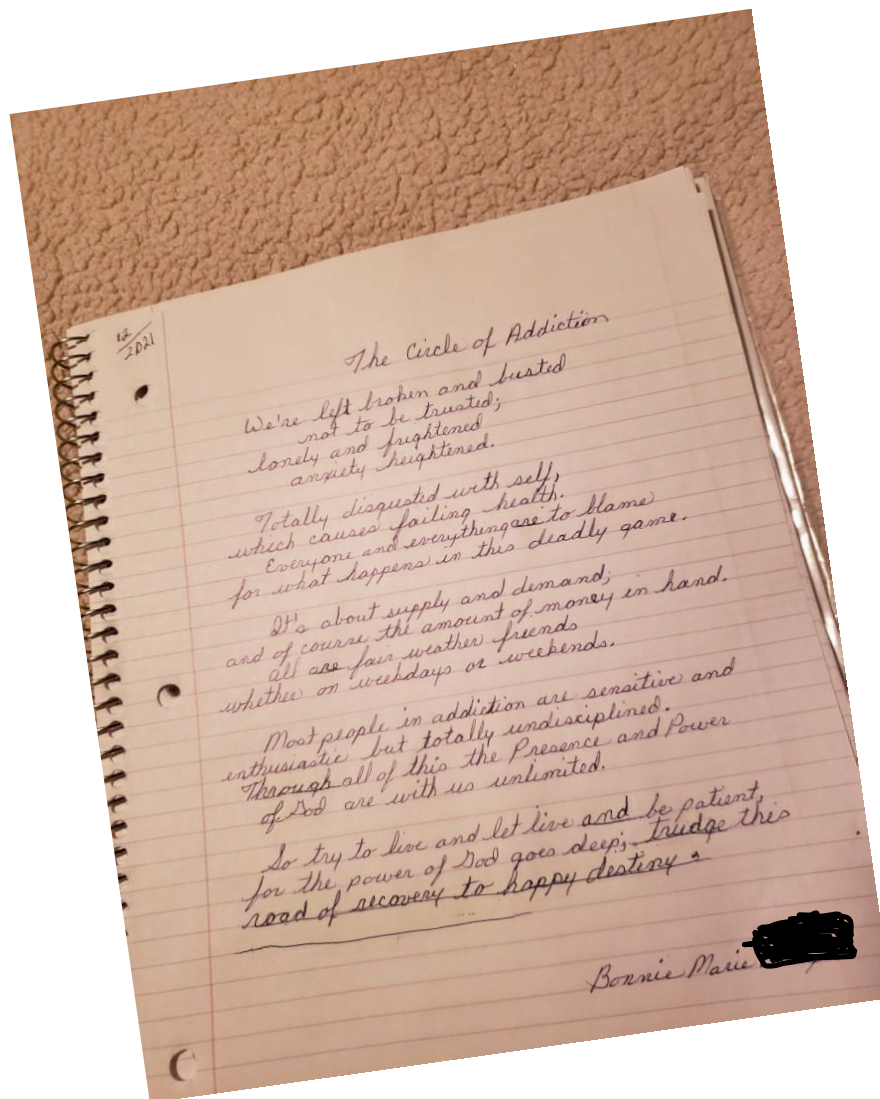 12/2021
The Circle of Addiction
We're left broken and busted
not to be trusted;
lonely and frightened
anxiety heightened.
Totally disgusted with self,
which causes failing health.
Everyone and everything are to blame
for what happens in this deadly game.
It's about supply and demand;
and of course the amount of money in hand.
all are fair weather friends
whether on weekdays or weekends.
Most people in addiction are sensitive and
enthusiastic but totally undisciplined.
Through all of this the Presence and Power
of God are with us unlimited.
So try to live and let live and be patient,
for the power of God goes deep; trudge this
road of recovery to happy destiny.
Bonnie Marie